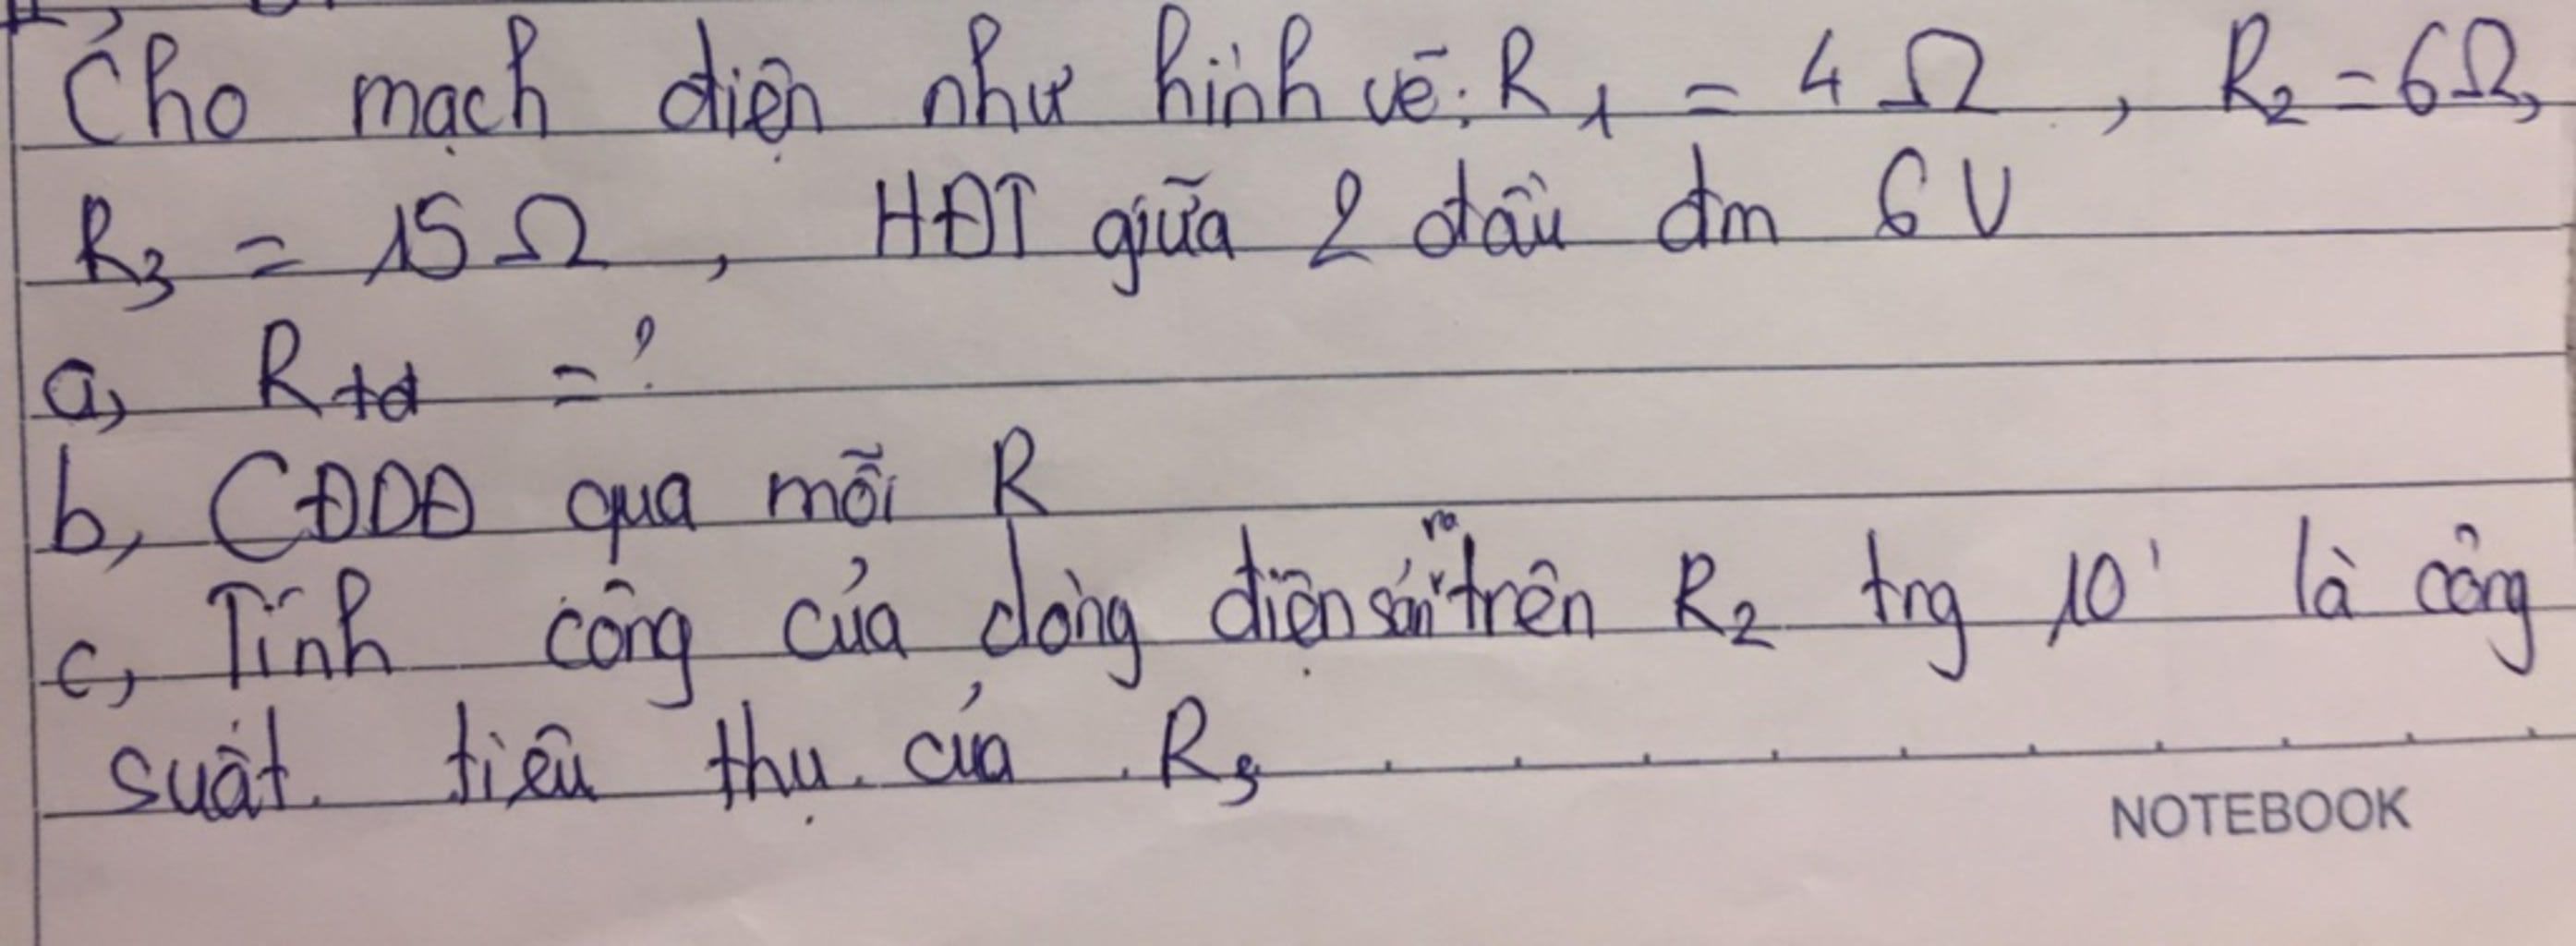 Cho mạch điện như hình vẽ: R₁ = 4 Ω, R₂ = 6Ω,
R₃ = 15 Ω, HĐT giữa 2 đầu đm 6 V
a, Rtđ = ?
b, CĐDĐ qua mỗi R
c, Tính công của dòng điện sản ra trên R₂ trg 10' là công
suất tiêu thụ của R₃
NOTEBOOK